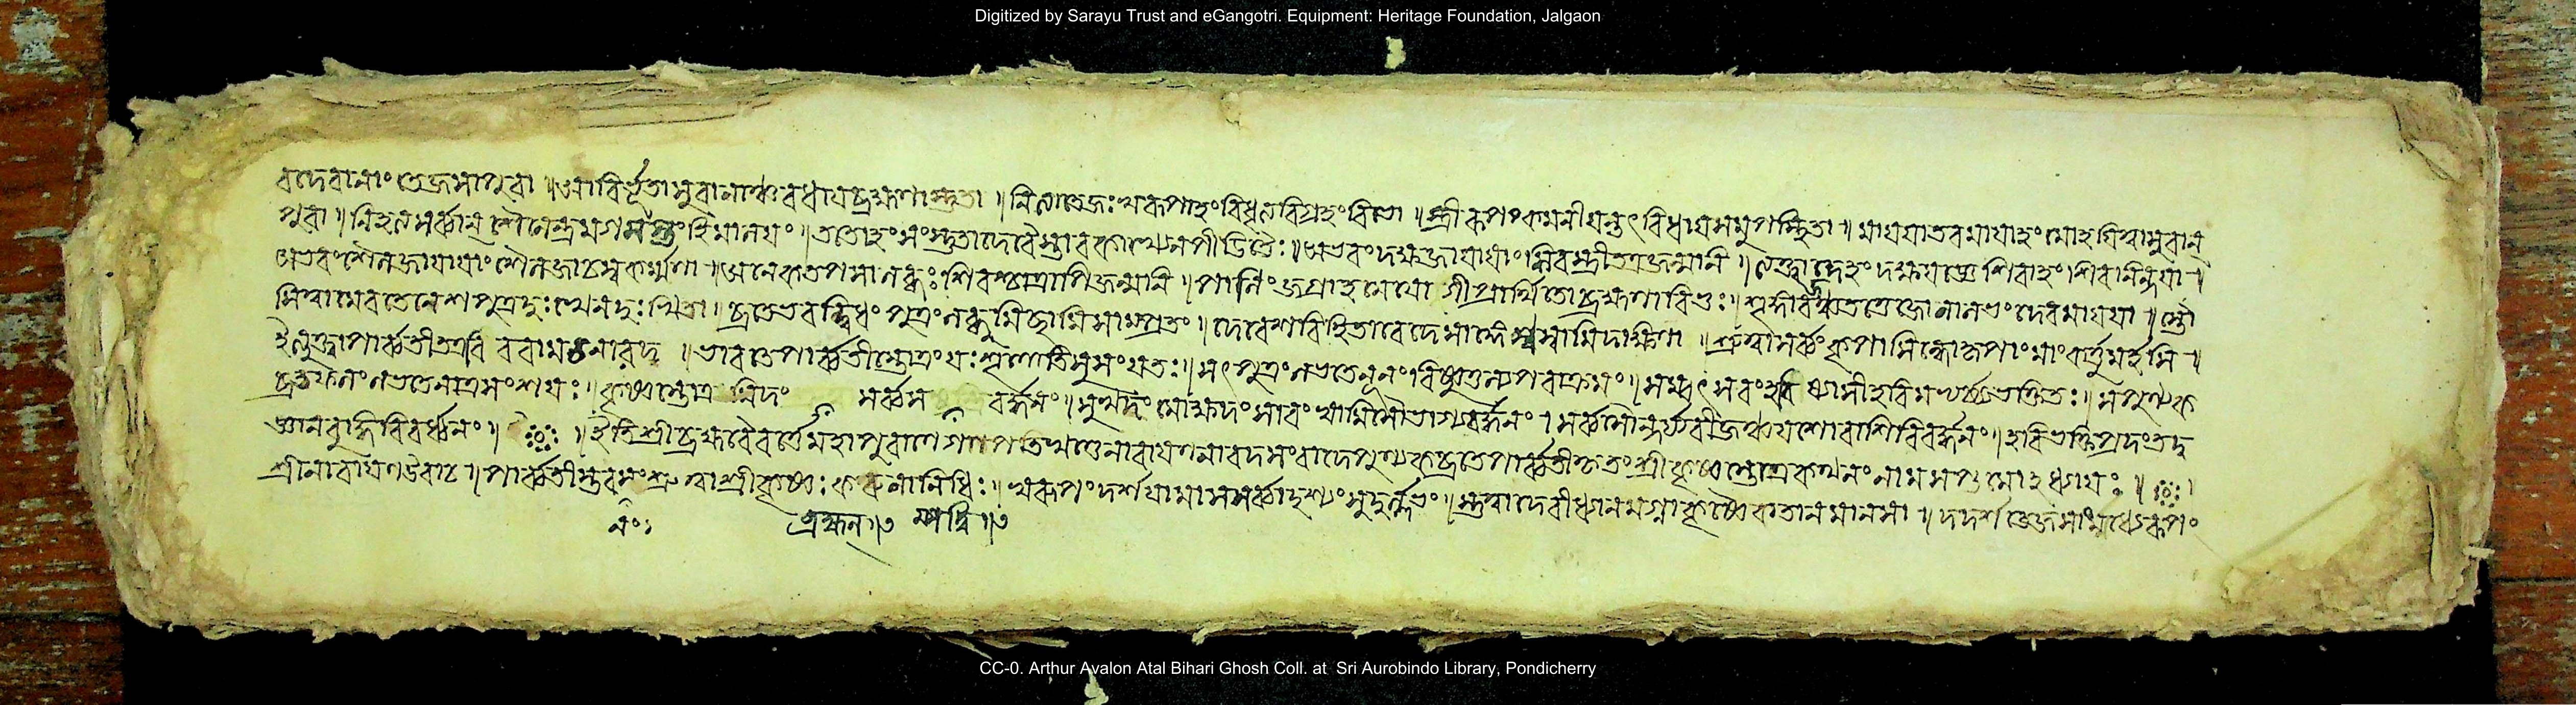 Digitized by Sarayu Trust and eGangotri. Equipment: Heritage Foundation, Jalgaon
বদেবানাং তেজসাপুরা ॥ আবির্ভূতাসুরানাঞ্চ বধায়ব্রহ্মণাস্তুতা ॥ নিত্যাতেজঃস্বরূপাহংবিধৃত্যবিগ্রহংবিভো ॥ স্ত্রীরূপংকমনীয়ঞ্চ বিধায়সমুপস্থিতা ॥ মায়য়াতবমায়াহং মোহয়িত্বাসুরান্
পুরা ॥ নিহত্যসর্ব্বান্ শৈলেন্দ্রমগমন্তংহিমালয়ং ॥ ততোহংসংস্তুতাদেবৈস্তারকাখ্যেনপীড়িতৈঃ ॥ অভবংদক্ষজায়ায়াং শিবস্ত্রীতত্রজন্মনি ॥ ত্যক্ত্বাদেহংদক্ষযজ্ঞে শিবাহংশিবনিন্দয়া ॥
অভবংশৈলজায়ায়াং শৈলজাচস্বকর্ম্মণা ॥ অনেকতপসালব্ধঃ শিবশ্চাত্রাপিজন্মনি ॥ পাণিংজগ্রাহমেযোগীপ্রার্থিতোব্রহ্মণাবিভুঃ ॥ শৃঙ্গারজঞ্চতত্তেজোনালভংদেবমায়য়া ॥ স্তৌ
মিত্বামেবতেনেশপুত্রদুঃখেনদুঃখিতা ॥ ব্রতেভবদ্বিধংপুত্রংলব্ধুমিচ্ছামিসাম্প্রতং ॥ দেবেশবিহিতাবেদেসাঙ্গেস্বস্বামিদক্ষিণা ॥ শ্রুত্বাসর্ব্বংকৃপাসিন্ধোকৃপাংমাংকর্ত্তুমর্হসি ॥
ইত্যুক্ত্বাপার্ব্বতীতত্রবিররামচনারদ ॥ ভারতেপার্ব্বতীস্তোত্রংযঃশৃণোতিসুসংযতঃ ॥ সৎপুত্রংলভতেনূনংবিষ্ণুতুল্যপরাক্রমং ॥ সম্বৎসরংহবিষ্যাশীহরিমভ্যর্চ্চ্যভক্তিতঃ ॥ সপুণ্যক
ব্রতফলংলভতেনাত্রসংশয়ঃ ॥ কৃষ্ণস্তোত্রমিদং সর্ব্বস বর্দ্ধনং ॥ সুখদংমোক্ষদংসারংস্বামিসৌভাগ্যবর্দ্ধনং । সর্ব্বসৌন্দর্য্যবীজঞ্চযশোরাশিবিবর্দ্ধনং ॥ হরিভক্তিপ্রদংতদ্
জ্ঞানবুদ্ধিবিবর্দ্ধনং ॥ ॥ ইতিশ্রীব্রহ্মবৈবর্ত্তেমহাপুরাণেগণপতিখণ্ডেনারায়ণনারদসংবাদেপুণ্যকব্রতেপার্ব্বতীকৃতংশ্রীকৃষ্ণস্তোত্রকথনংনামসপ্তমোহধ্যায়ঃ ॥
শ্রীনারায়ণউবাচ ॥ পার্ব্বতীস্তবমংশ্রুত্বাশ্রীকৃষ্ণঃকরুণানিধিঃ ॥ স্বরূপংদর্শয়ামাসসর্ব্বাদৃশ্যংসুদুর্ল্লভং ॥ স্তুত্বাদেবীধ্যানমগ্নাকৃষ্ণৈকতানমানসা ॥ দদর্শতেজসাংমধ্যেরূপং
ব্রহ্মন্ ॥৩ ম্পত্তি ॥৩
CC-0. Arthur Avalon Atal Bihari Ghosh Coll. at Sri Aurobindo Library, Pondicherry